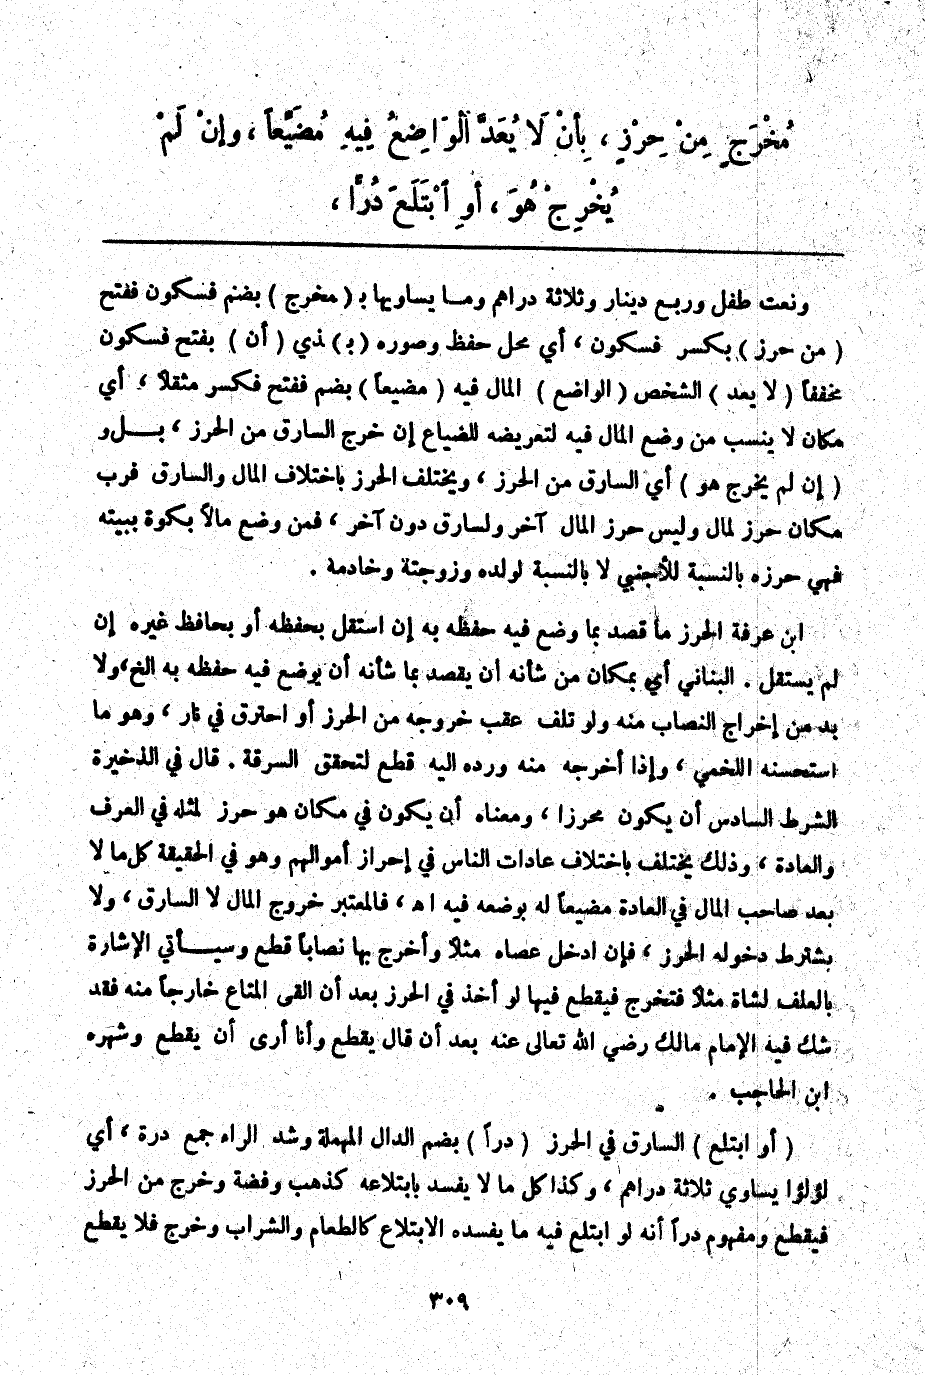 مُخْرَجٍ مِنْ حِرْزٍ ، بِأَنْ لَا يُعَدَّ الْوَاضِعُ فِيهِ مُضَيِّعاً ، وإنْ لَمْ
يُخْرِجْ هُوَ ، أوِ ابْتَلَعَ دُرًّا ،
ونعت طفل وربع دينار وثلاثة دراهم وما يساويها بـ ( مخرج ) بضم فسكون ففتح
( من حرز ) بكسر فسكون ، أي محل حفظ وصوره ( بـ ) ـذي ( أن ) بفتح فسكون
مخففاً ( لا يعد ) الشخص ( الواضع ) المال فيه ( مضيعاً ) بضم ففتح فكسر مثقلاً ، أي
مكان لا ينسب من وضع المال فيه لتعريضه للضياع إن خرج السارق من الحرز ، بــل و
( إن لم يخرج هو ) أي السارق من الحرز ، ويختلف الحرز باختلاف المال والسارق فرب
مكان حرز لمال وليس حرز المال آخر ولسارق دون آخر ، فمن وضع مالاً بكوة ببيته
فهي حرزه بالنسبة للأجنبي لا بالنسبة لولده وزوجتة وخادمة .
ابن عرفة الحرز ما قصد بما وضع فيه حفظه به إن استقل بحفظه أو بحافظ غيره إن
لم يستقل . البناني أي بمكان من شأنه أن يقصد بما شأنه أن يوضع فيه حفظه به الخ ،ولا
بد من إخراج النصاب منه ولو تلف عقب خروجه من الحرز أو احترق في نار ، وهو ما
استحسنه اللخمي ، وإذا أخرجه منه ورده اليه قطع لتحقق السرقة . قال في الذخيرة
الشرط السادس أن يكون محرزا ، ومعناه أن يكون في مكان هو حرز لمثله في العرف
والعادة ، وذلك يختلف باختلاف عادات الناس في إحراز أموالهم وهو في الحقيقة كل ما لا
يعد صاحب المال في العادة مضيعاً له بوضعه فيه ا هـ ، فالمعتبر خروج المال لا السارق ، ولا
يشترط دخوله الحرز ، فإن ادخل عصاه مثلاً وأخرج بها نصاباً قطع وسيــأتي الإشارة
بالعلف لشاة مثلاً فتخرج فيقطع فيها لو أخذ في الحرز بعد أن القى المتاع خارجاً منه فقد
شك فيه الإمام مالك رضي الله تعالى عنه بعد أن قال يقطع وأنا أرى أن يقطع وشهره
ابن الحاجب .
( أو ابتلع ) السارق في الحرز ( دراً ) بضم الدال المهملة وشد الراء جمع درة ، أي
لؤلؤا يساوي ثلاثة دراهم ، وكذا كل ما لا يفسد بابتلاعه كذهب وفضة وخرج من الحرز
فيقطع ومفهوم دراً أنه لو ابتلع فيه ما يفسده الابتلاع كالطعام والشراب وخرج فلا يقطع
٣٠٩